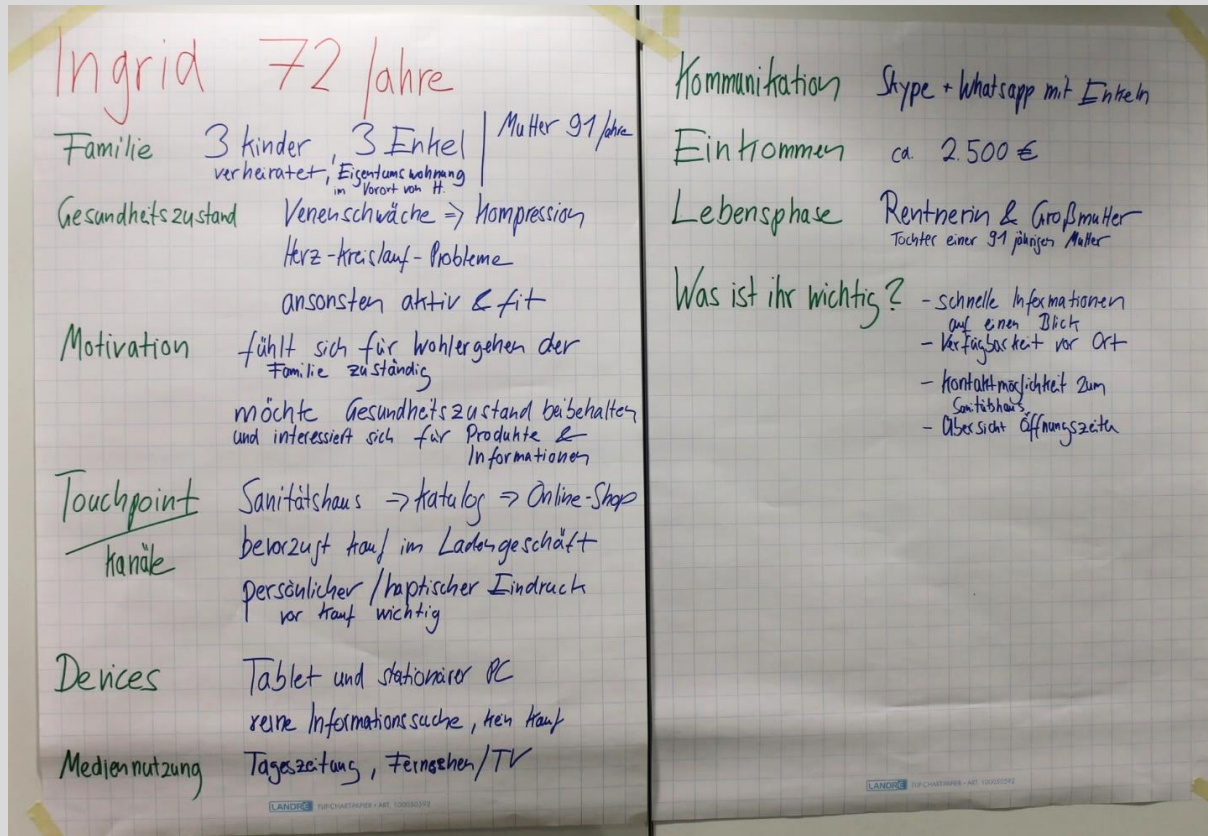 Ingrid 72 Jahre
Familie 3 Kinder, 3 Enkel | Mutter 91 Jahre
verheiratet, Eigentumswohnung
im Vorort von H.
Gesundheitszustand Venenschwäche => Kompression
Herz-Kreislauf-Probleme
ansonsten aktiv & fit
Motivation fühlt sich für Wohlergehen der
Familie zuständig
möchte Gesundheitszustand beibehalten
und interessiert sich für Produkte &
Informationen
Touchpoint Sanitätshaus => Katalog => Online-Shop
Kanäle bevorzugt Kauf im Ladengeschäft
persönlicher/haptischer Eindruck
vor Kauf wichtig
Devices Tablet und stationärer PC
reine Informationssuche, kein Kauf
Mediennutzung Tageszeitung, Fernsehen/TV
LANDRÉ FLIP-CHARTPAPIER • ART. 100050592
Kommunikation Skype + Whatsapp mit Enkeln
Einkommen ca. 2.500 €
Lebensphase Rentnerin & Großmutter
Tochter einer 91 jährigen Mutter
Was ist ihr wichtig? - schnelle Informationen
auf einen Blick
- Verfügbarkeit vor Ort
- Kontaktmöglichkeit zum
Sanitätshaus
- Übersicht Öffnungszeiten
LANDRÉ FLIP-CHARTPAPIER • ART. 100050592